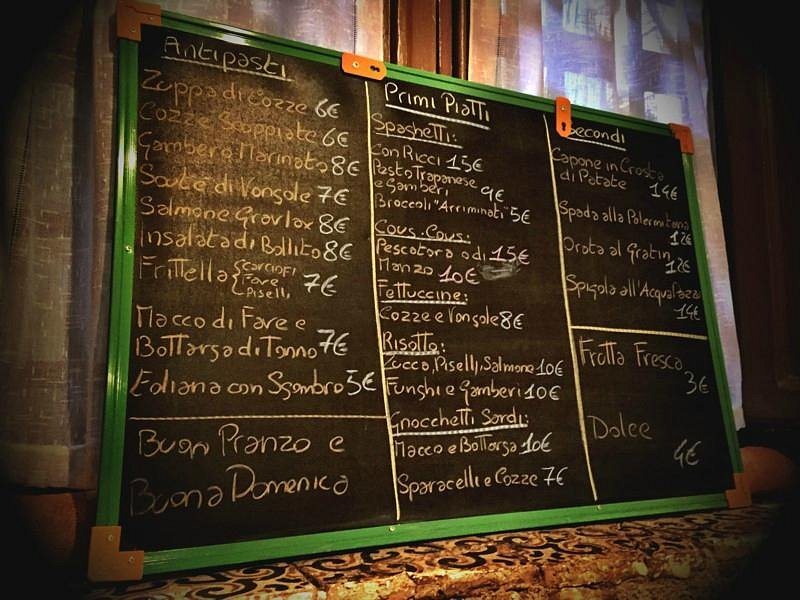 Antipasti
Zuppa di Cozze 6€
Cozze Scoppiate 6€
Gambero Marinato 8€
Soute di Vongole 7€
Salmone Gravlax 8€
Insalata di Bollito 8€
Frittella { Carciofi
Fave
Piselli 7€
Macco di Fave e
Bottarga di Tonno 7€
Eoliana con Sgombro 5€
Buon Pranzo e
Buona Domenica
Primi Piatti
Spaghetti:
Con Ricci 15€
Pesto Trapanese
e Gamberi 9€
Broccoli "Arriminati" 5€
Cous-Cous:
Pescatora o di 15€
Manzo 10€
Fettuccine:
Cozze e Vongole 8€
Risotto:
Zucca, Piselli, Salmone 10€
Funghi e Gamberi 10€
Gnocchetti Sardi:
Macco e Bottarga 10€
Sparacelli e Cozze 7€
Secondi
Capone in Crosta
di Patate 14€
Spada alla Palermitana
12€
Orata al Gratin
12€
Spigola all'Acqua Pazza
14€
Frutta Fresca
3€
Dolce
4€